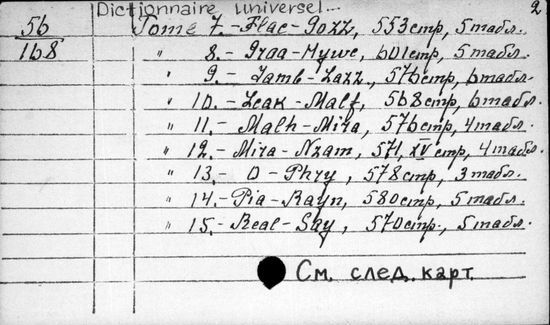 Dictionnaire universel... 2
56 Tome 7.- Flac-Gozz, 553 стр, 5 табл.
168 " 8.- Graa-Hywe, 601 стр, 5 табл.
" 9.- Jamb-Lazz, 576 стр, 6 табл.
" 10.- Leak-Malf, 568 стр, 6 табл.
" 11.- Malh-Mira, 576 стр, 4 табл.
" 12.- Mira-Nzam, 571, XV стр, 4 табл.
" 13.- O-Phry, 578 стр, 3 табл.
" 14.- Pia-Rayn, 580 стр, 5 табл.
" 15.- Real-Say, 570 стр., 5 табл.
См. след. карт.